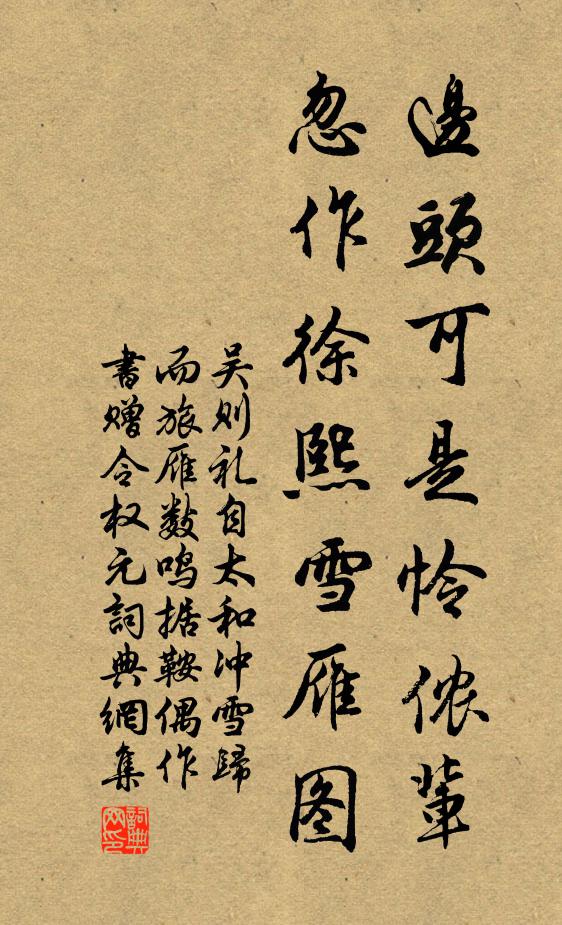 邊頭可是怜侬輩
忽作徐熙雪雁图
吴则礼自太和冲雪歸
而旅雁数鸣据鞍偶作
書赠令权元詞典網集
詞典网印